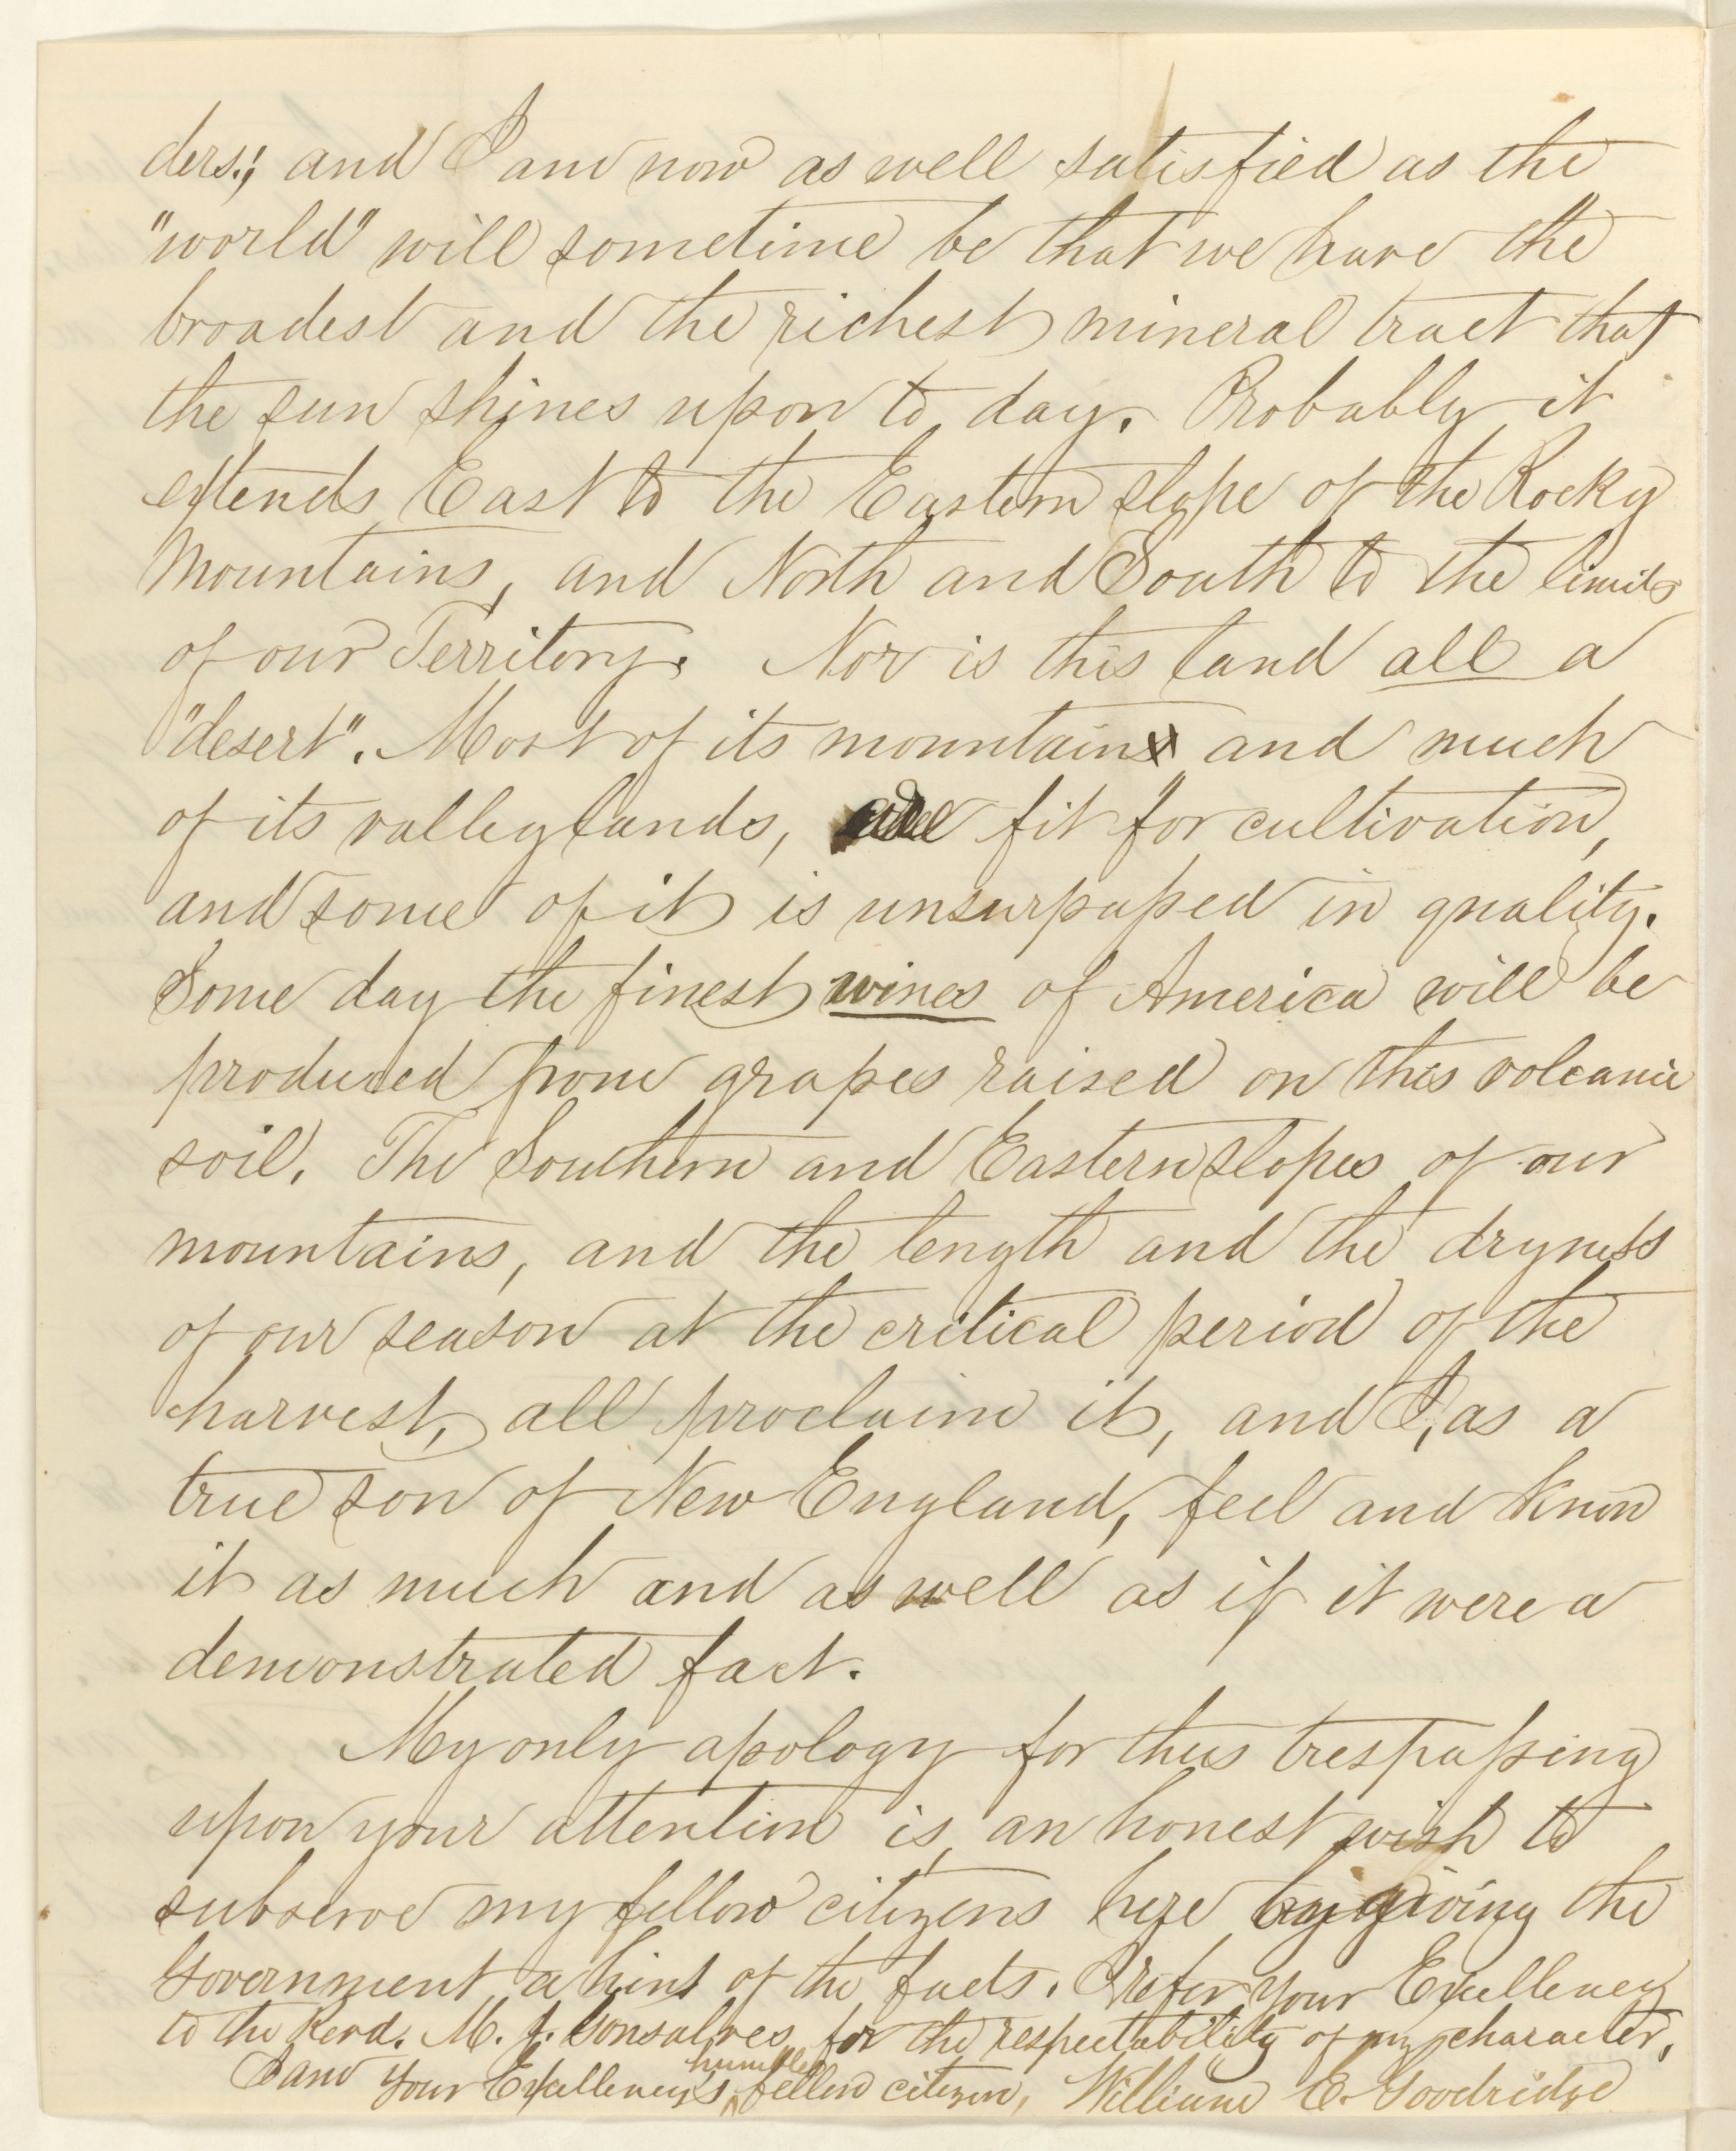 ders; and I am now as well satisfied as the
"world" will sometime be that we have the
broadest and the richest mineral tract that
the sun shines upon to day. Probably it
extends East to the Eastern slope of the Rocky
Mountains, and North and South to the limits
of our Territory. Nor is this land all a
"desert". Most of its mountain and much
of its valley lands, are fit for cultivation,
and some of it is unsurpassed in quality.
Some day the finest wines of America will be
produced from grapes raised on this volcanic
soil. The Southern and Eastern slopes of our
mountains, and the length and the dryness
of our season at the critical period of the
harvest, all proclaim it, and I, as a
true son of New England, feel and know
it as much and as well as if it were a
demonstrated fact.
My only apology for thus trespassing
upon your attention is an honest wish to
subserve my fellow citizens here by giving the
Government a hint of the facts. I refer your Excellency
to the Revd. M. J. Gonsalves for the respectability of my character,
I am Your Excellency's humble fellow citizen, William E. Goodridge